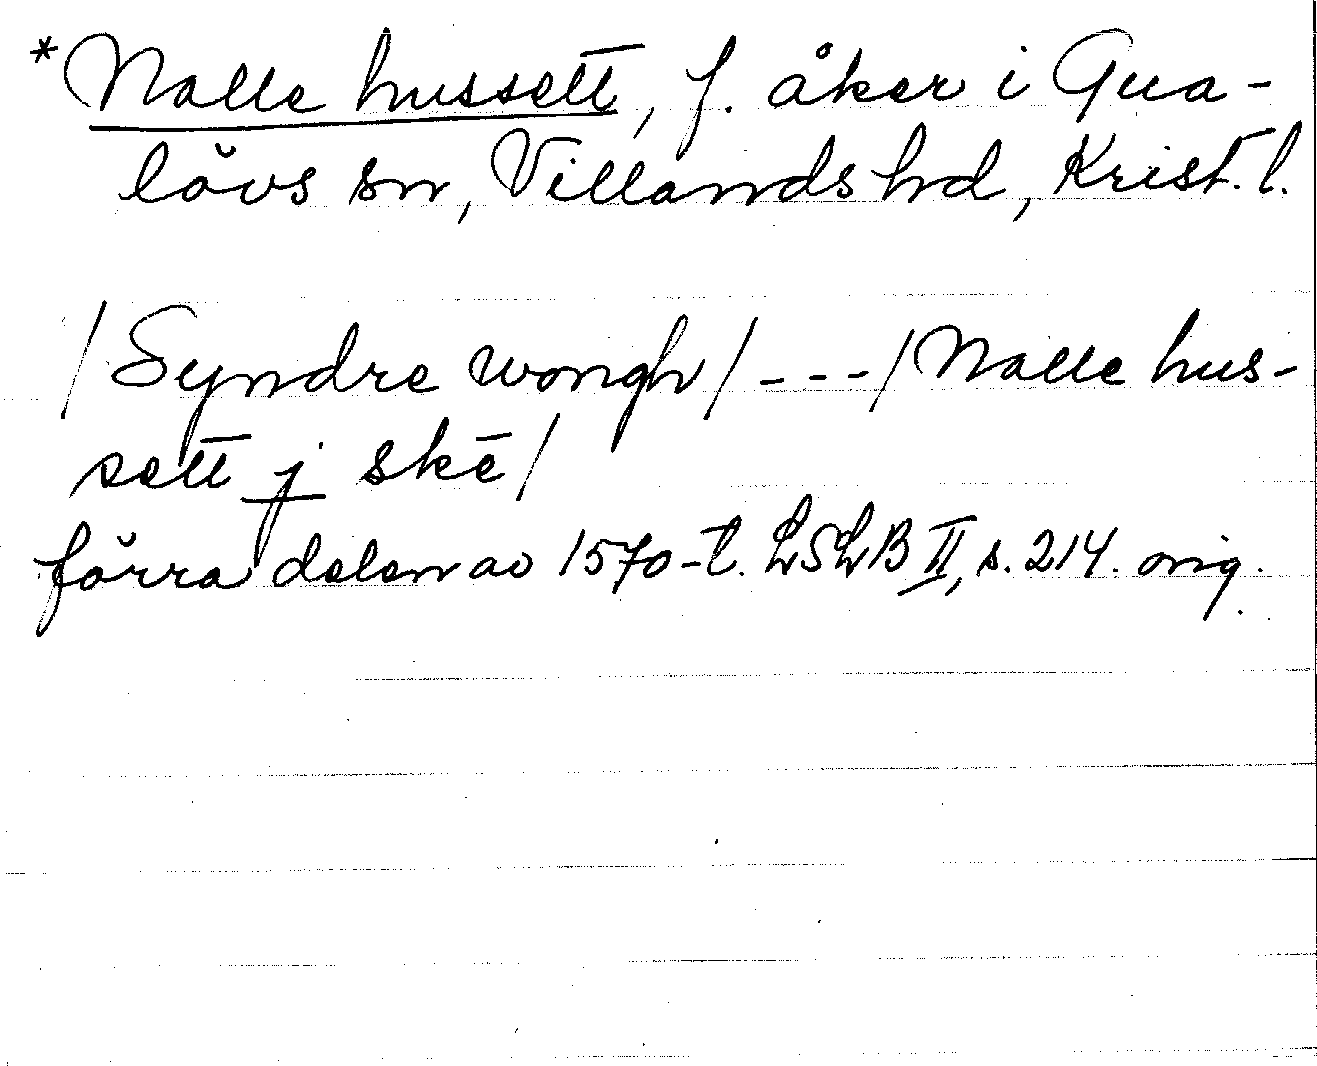 *Nalle hussett, f. åker i Gua-
lövs sn, Villands hd, Krist. l.
/Syndre wongh/ - - - /Nalle hus-
sett j skē/
förra delen av 1570-t. LSLB II, s. 214. orig.